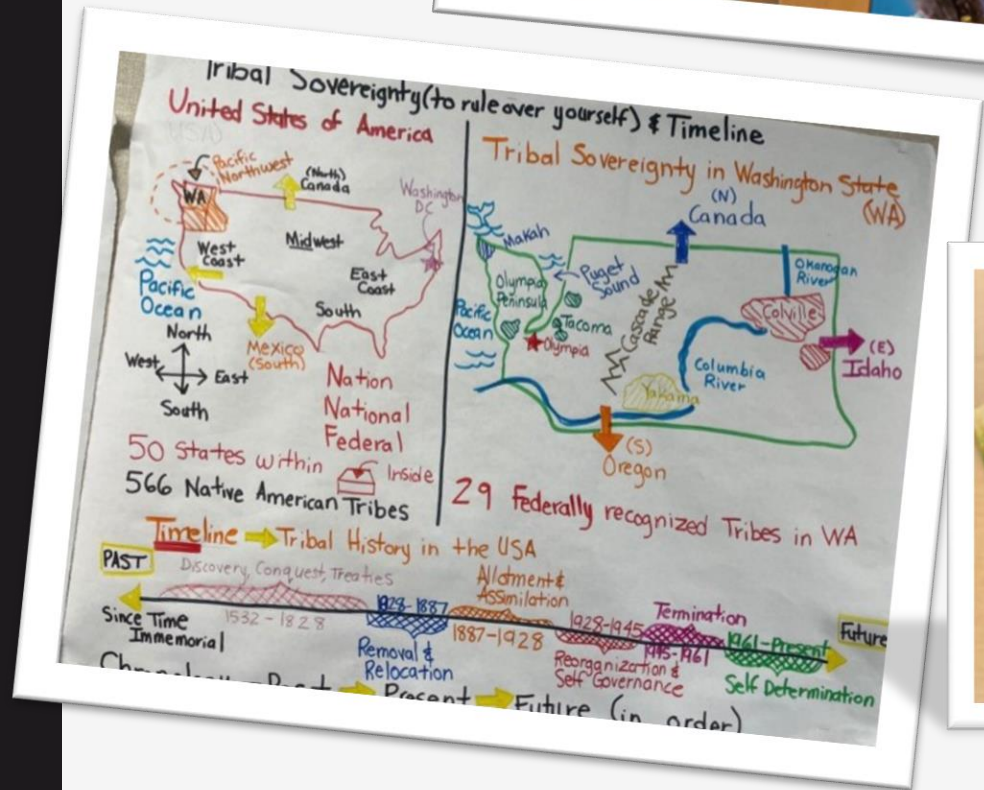 Tribal Sovereignty (to rule over yourself) & Timeline
United States of America
USA)
Pacific
Northwest
WA
(North)
Canada
Washington
DC
West
Coast
Midwest
East
Coast
South
Pacific
Ocean
Mexico
(South)
North
West
East
South
Nation
National
Federal
50 States within
Inside
566 Native American Tribes
Tribal Sovereignty in Washington State
(WA)
(N)
Canada
Makah
Olympic
Peninsula
Puget
Sound
Pacific
Ocean
Tacoma
Olympia
Cascade
Range
Okanogan
River
Colville
Columbia
River
Yakama
(E)
Idaho
(S)
Oregon
29 Federally recognized Tribes in WA
Timeline Tribal History in the USA
PAST
Discovery, Conquest, Treaties
1532 - 1828
Since Time
Immemorial
1828-1887
Removal &
Relocation
Allotment &
Assimilation
1887-1928
1928-1945
Reorganization &
Self Governance
Termination
1945-1961
1961-Present
Self Determination
Future
Past Present Future (in order)